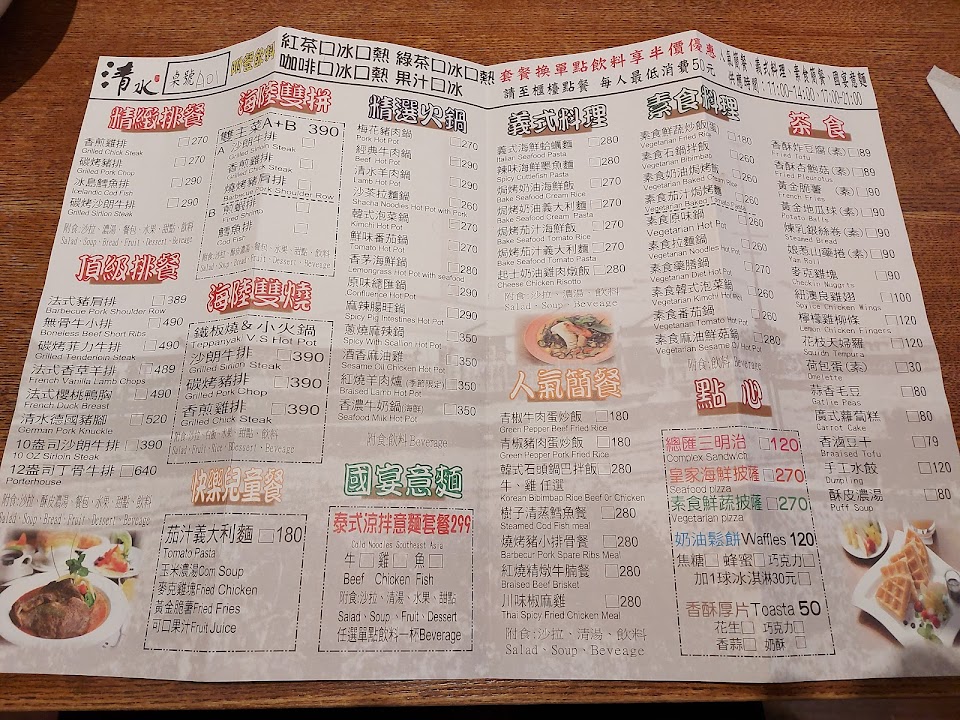 清水
桌號 A01
附餐飲料
紅茶口冰口熱 綠茶口冰口熱
咖啡口冰口熱 果汁口冰
套餐換單點飲料享半價優惠
請至櫃檯點餐 每人最低消費50元
人氣簡餐、義式料理、素食簡餐、國宴意麵
供應時間:11:00~14:00、17:00~21:00
精緻排餐
香煎雞排 □270
Grilled Chick Steak
碳烤豬排 □270
Grilled Pork Chop
冰島鱈魚排 □290
Icelandic Cod Fish
碳烤沙朗牛排 □290
Grilled Sirloin Steak
附食:沙拉、濃湯、餐包、水果、甜點、飲料
Salad、Soup、Bread、Fruit、Dessert、Beveage
頂級排餐
法式豬肩排 □389
Barbecue Pork Shoulder Row
無骨牛小排 □490
Boneless Beef Short Ribs
碳烤菲力牛排 □490
Grilled Tenderloin Steak
法式香草羊排 □489
French Vanilla Lamb Chops
法式櫻桃鴨胸 □490
French Duck Breast
清水德國豬腳 □520
German Pork Knuckle
10盎司沙朗牛排 □390
10 OZ Sirloin Steak
12盎司丁骨牛排 □640
Porterhouse
附食:沙拉、酥皮濃湯、餐包、水果、甜點、飲料
Salad、Soup、Bread、Fruit、Dessert、Beveage
海陸雙拼
雙主菜A+B 390
A 沙朗牛排 □
Grilled Sirloin Steak
香煎雞排 □
Grilled Chick Steak
燒烤豬肩排 □
Barbecue Pork Shoulder Row
B 煎鮮蝦 □
Fried Shrimp
鱈魚排 □
Cod Fish
附食:沙拉、濃湯、餐包、水果、甜點、飲料
Salad、Soup、Bread、Fruit、Dessert、Beverage
海陸雙燒
鐵板燒&小火鍋
Teppanyak V.S Hot Pot
沙朗牛排 □390
Grilled Sirloin Steak
碳烤豬排 □390
Grilled Pork Chop
香煎雞排 □390
Grilled Chick Steak
Salad、Soup、Fruit、Dessert、Beveage
快樂兒童餐
茄汁義大利麵 □180
Tomato Pasta
玉米濃湯Corn Soup
麥克雞塊Fried Chicken
黃金脆薯Fried Fries
可口果汁Fruit Juice
精選火鍋
梅花豬肉鍋 □270
Pork Hot Pot
經典牛肉鍋 □290
Beef Hot Pot
清水羊肉鍋 □290
Lamb Hot Pot
沙茶拉麵鍋 □260
Shacha Noodles Hot Pot with Pork
韓式泡菜鍋 □270
Kimchi Hot Pot with Pork
鮮味番茄鍋 □270
Tomato Hot Pot
香茅海鮮鍋 □280
Lemongrass Hot Pot with seafood
原味總匯鍋 □280
Confluence Hot Pot
麻辣腸旺鍋 □290
Spicy Pig Intestines Hot Pot
蔥燒麻辣鍋 □290
Spicy With Scallion Hot Pot
清香麻油雞 □300
Sesame Oil Chicken Hot Pot
紅燒羊肉爐(季節限定) □350
Braised Lamb Hot Pot
香濃牛奶鍋(海鮮) □350
Seafood Milk Hot Pot
附食飲料Beverage
國宴意麵
泰式涼拌意麵套餐299
Cold Noodles Southeast Asia
牛□ 雞□ 魚□
Beef Chicken Fish
附食:沙拉、清湯、水果、甜點
Salad、Soup、Fruit、Dessert
任選單點飲料一杯Beverage
義式料理
義式海鮮蛤蠣麵 □280
Italian Seafood Pasta
辣味海鮮墨魚麵 □280
Spicy Cuttlefish Pasta
焗烤奶油海鮮飯 □280
Bake Seafood Cream Rice
焗烤奶油義大利麵 □280
Bake Seafood Cream Pasta
焗烤茄汁海鮮飯 □280
Bake Seafood Tomato Rice
焗烤茄汁義大利麵 □280
Bake Seafood Tomato Pasta
起士奶油雞肉燉飯 □280
Cheese Chicken Risotto
附食:沙拉、濃湯、飲料
Salad、Soup、Beveage
人氣簡餐
青椒牛肉蛋炒飯 □180
Green Pepper Beef Fried Rice
青椒豬肉蛋炒飯 □180
Green Pepper Pork Fried Rice
韓式石頭鍋巴拌飯 □280
牛、雞 任選
Korean Bibimbap Rice Beef Or Chicken
樹子清蒸鱈魚餐 □280
Steamed Cod Fish meal
燒烤豬小排骨餐 □280
Barbecur Pork Spare Ribs Meal
紅燒精燉牛腩餐 □280
Braised Beef Brisket
川味椒麻雞 □280
Thai Spicy Fried Chicken Meal
附食:沙拉、清湯、飲料
Salad、Soup、Beveage
素食料理
素食鮮蔬炒飯(蛋) □180
Vegetarian Fried Rice
素食石鍋拌飯 □280
Vegetarian Bibimbap
素食奶油焗烤飯 □280
Vegetarian Baked Cream Rice
素食茄汁焗烤麵 □280
Vegetarian Baked Tomato Pasta
素食原味鍋 □260
Vegetarian Hot Pot
素食拉麵鍋 □260
Vegetarian Noodles Hot Pot
素食藥膳鍋 □260
Vegetarian Diet Hot Pot
素食韓式泡菜鍋 □260
Vegetarian Kimchi Hot Pot
素食番茄鍋 □260
Vegetarian Tomato Hot Pot
素食麻油鮮菇鍋 □280
Vegetarian Sesame Oil Hot Pot
附食:飲料Beverage
點心
總匯三明治 □120
Complex Sandwich
皇家海鮮披薩 □270
Seafood pizza
素食鮮蔬披薩 □270
Vegetarian pizza
奶油鬆餅Waffles 120
焦糖□ 蜂蜜□ 巧克力□
加1球冰淇淋30元□
香酥厚片Toasta 50
花生□ 巧克力□
香蒜□ 奶酥 □
茶食
香酥炸豆腐(素) □89
Fried Tofu
香酥杏鮑菇(素) □89
Fried Pleurotus
黃金脆薯 (素) □90
Fried Fries
黃金地瓜球(素) □90
Potato Ball
煉乳銀絲卷(素) □90
Steamed Bread
□90
Yam Roll
麥克雞塊 □90
Chicken Nuggets
紐澳良雞翅 □100
Chicken Wings
檸檬雞柳條 □120
Lemon Chicken Fingers
花枝天婦羅 □120
Squidn Tempura
荷包蛋(素) □30
Omelette
蒜香毛豆 □80
Garlise Peas
廣式蘿蔔糕 □80
Carrot Cake
香滷豆干 □79
Braised Tofu
手工水餃 □120
Dumpling
酥皮濃湯 □80
Puff Soup